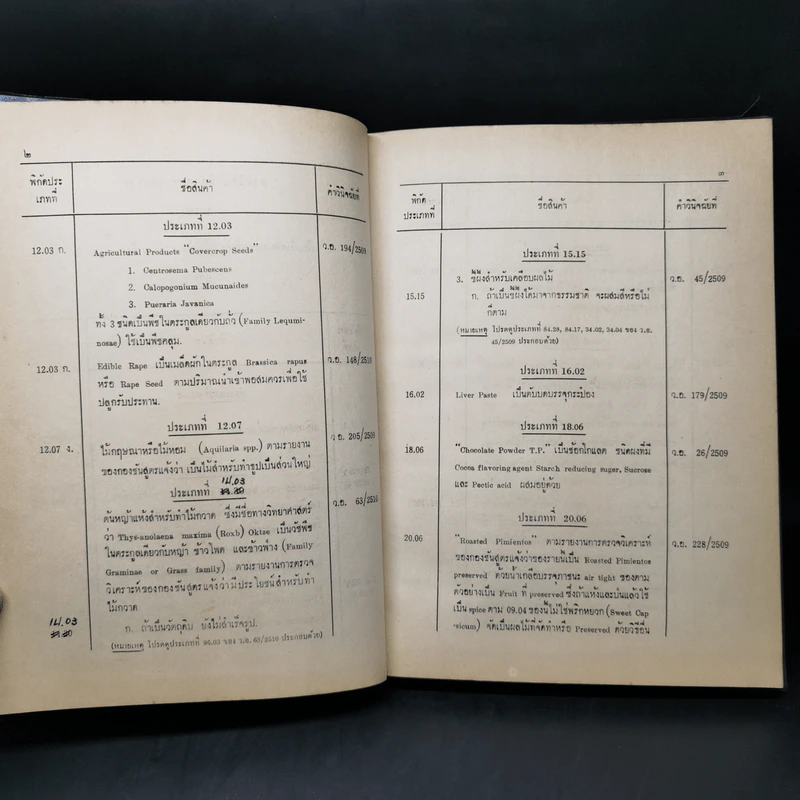 ๒
พิกัดประ
เภทที่
ชื่อสินค้า
คำวินิจฉัยที่
ประเภทที่ 12.03
12.03 ก.
Agricultural Products "Covercrop Seeds"
ว.อ. 194/2509
1. Centrosema Pubescens
2. Calopogonium Mucunaides
3. Pueraria Javanica
ทั้ง 3 ชนิดเป็นพืชในตระกูลเดียวกับถั่ว (Family Legumi-
nosae) ใช้เป็นพืชคลุม.
12.03 ก.
Edible Rape เป็นเมล็ดผักในตระกูล Brassica rapus
ว.อ. 148/2510
หรือ Rape Seed ตามปริมาณนำเข้าพอสมควรเพื่อใช้
ปลูกรับประทาน.
ประเภทที่ 12.07
12.07 ง.
ไม้กฤษณาหรือไม้หอม (Aquilaria spp.) ตามรายงาน
ว.อ. 205/2509
ของกองชันสูตรแจ้งว่า เป็นไม้สำหรับทำธูปเป็นส่วนใหญ่
14.03
ประเภทที่
ต้นหญ้าแห้งสำหรับทำไม้กวาด ซึ่งมีชื่อทางวิทยาศาสตร์
ว.อ. 63/2510
ว่า Thys-anolaena maxima (Roxb) Oktze เป็นวัชพืช
ในตระกูลเดียวกับหญ้า ข้าวโพด และข้าวฟ่าง (Family
Graminae or Grass family) ตามรายงานการตรวจ
วิเคราะห์ของกองชันสูตรแจ้งว่ามีประโยชน์สำหรับทำ
ไม้กวาด
14.03
ก. ถ้าเป็นวัตถุดิบ ยังไม่สำเร็จรูป.
(หมายเหตุ โปรดดูประเภทที่ 96.03 ของ ว.อ. 63/2510 ประกอบด้วย)
๓
พิกัด
ประเภทที่
ชื่อสินค้า
คำวินิจฉัยที่
ประเภทที่ 15.15
3. ขี้ผึ้งสำหรับเคลือบผลไม้
ว.อ. 45/2509
15.15
ก. ถ้าเป็นขี้ผึ้งได้มาจากธรรมชาติ จะผสมสีหรือไม่
ก็ตาม
(หมายเหตุ โปรดดูประเภทที่ 84.28, 84.17, 34.02, 34.04 ของ ว.อ.
45/2509 ประกอบด้วย)
ประเภทที่ 16.02
16.02
Liver Paste เป็นตับบดบรรจุกระป๋อง
ว.อ. 179/2509
ประเภทที่ 18.06
18.06
"Chocolate Powder T.P." เป็นช้อกโกแลต ชนิดผงที่มี
ว.อ. 26/2509
Cocoa flavoring agent Starch reducing suger, Sucrose
และ Pectic acid ผสมอยู่ด้วย
ประเภทที่ 20.06
20.06
"Roasted Pimientos" ตามรายงานการตรวจวิเคราะห์
ว.อ. 228/2509
ของกองชันสูตรแจ้งว่าของรายนี้เป็น Roasted Pimientos
preserved ด้วยน้ำเกลือบรรจุภาชนะ air tight ของตาม
ตัวอย่างเป็น Fruit ที่ preserved ซึ่งถ้าแห้งและป่นแล้วใช้
เป็น spice ตาม 09.04 ของนี้ไม่ใช่พริกหยวก (Sweet Cap
-sicum) จัดเป็นผลไม้ที่จัดทำหรือ Preserved ด้วยวิธีอื่น